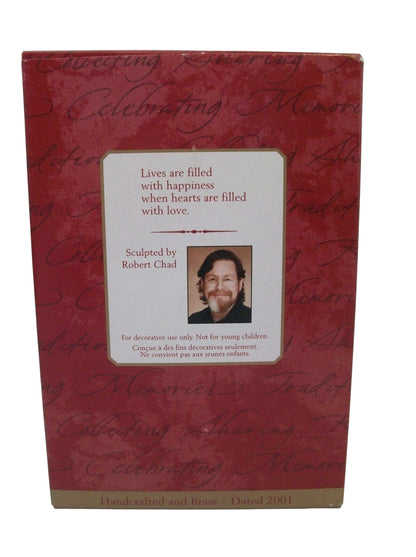 Collecting Sharing
Celebrating Memories
Lives are filled
with happiness
when hearts are filled
with love.
Sculpted by
Robert Chad
For decorative use only. Not for young children.
Conçue à des fins décoratives seulement.
Ne convient pas aux jeunes enfants.
Memories Tradi
Collecting Sharing
Celebrating Memories
Handcrafted and Brass – Dated 2001